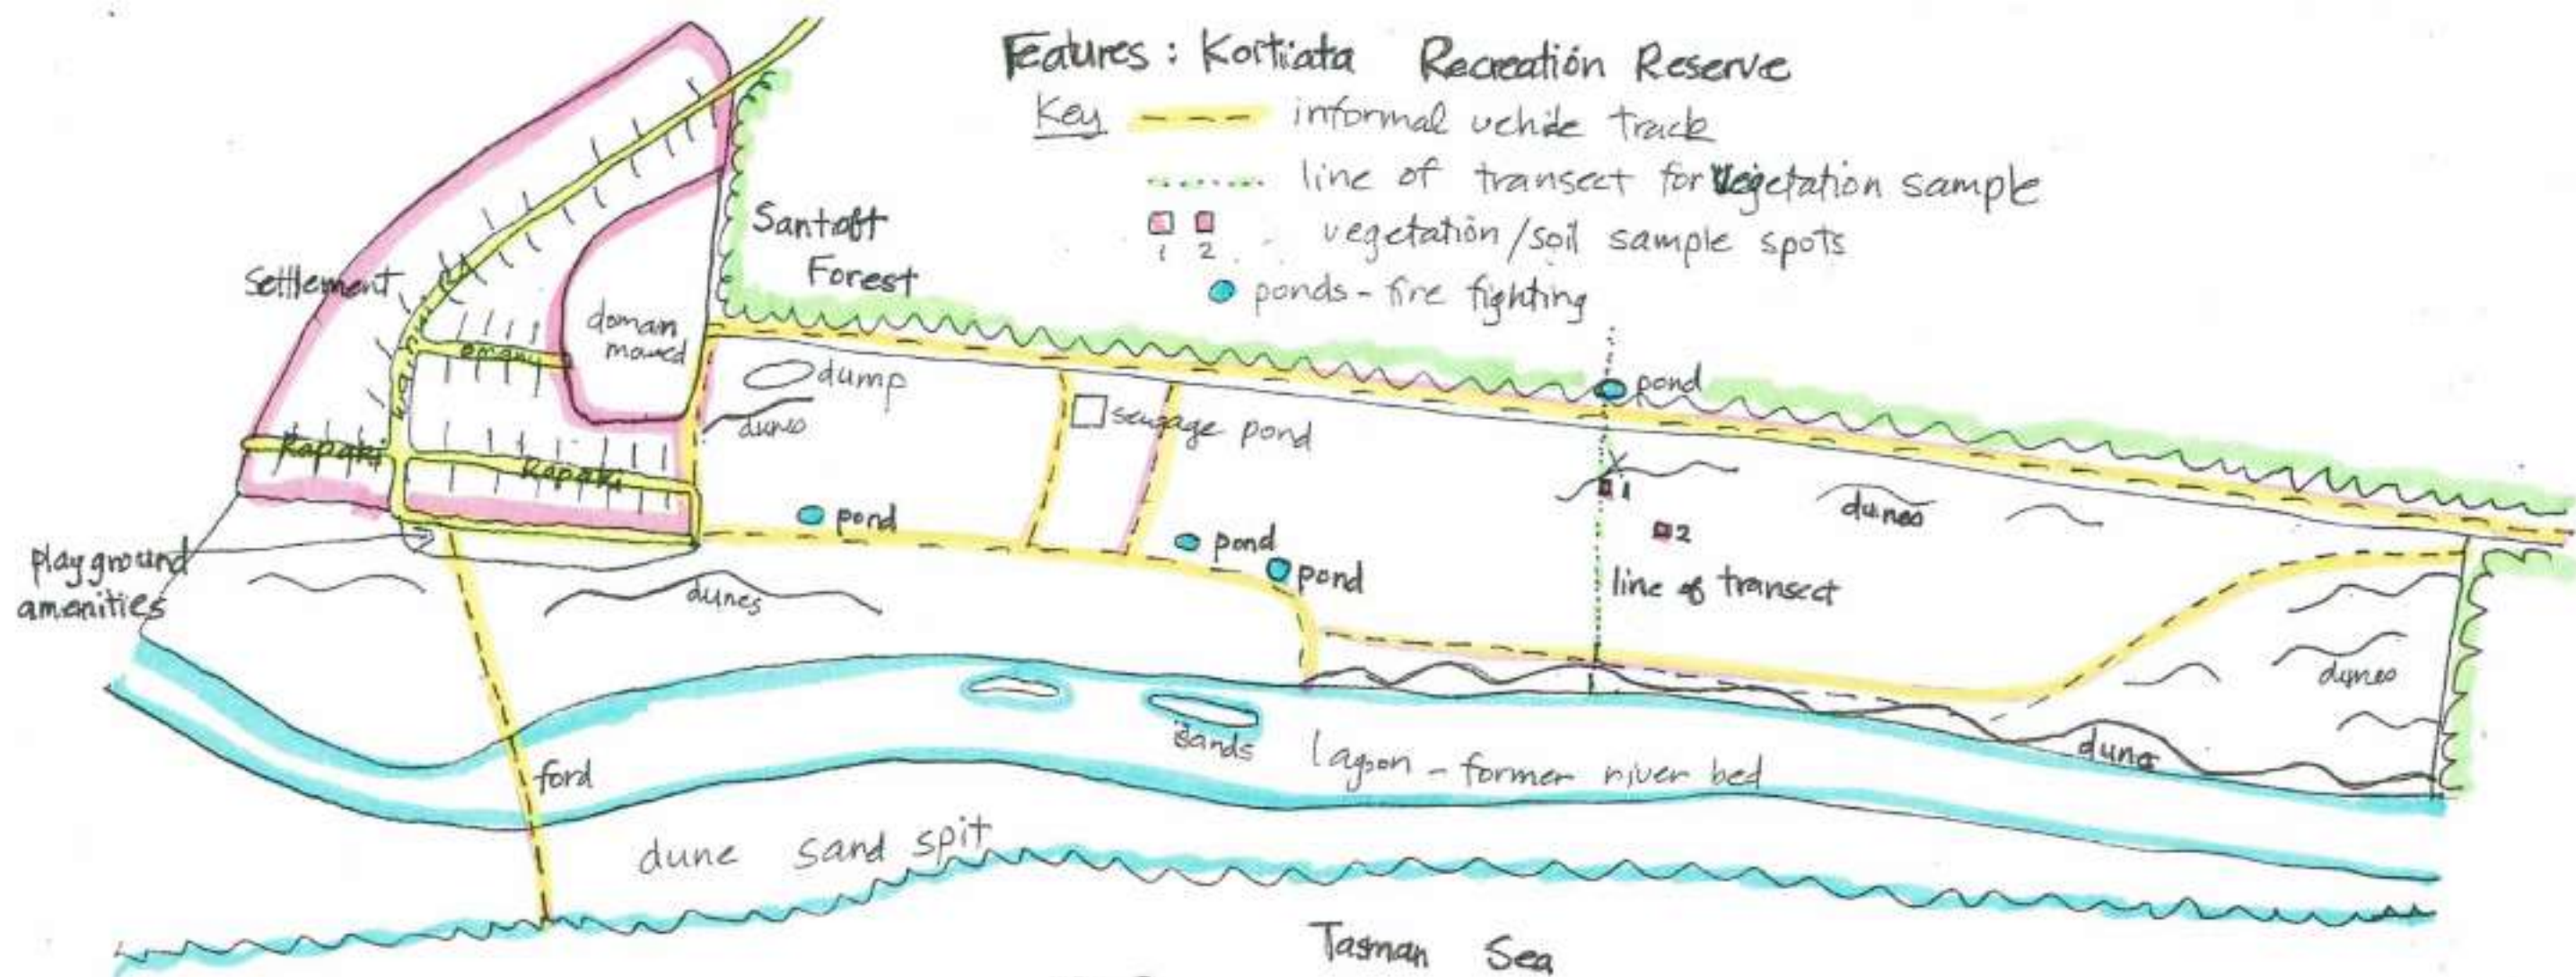 Features : Koitiata Recreation Reserve
Key
informal vehicle track
line of transect for Vegetation sample
1 2
vegetation/soil sample spots
ponds - fire fighting
Santoft
Forest
Settlement
domain
mowed
Omanu
dump
dunes
sewage pond
pond
Rapaki
Rapaki
1
2
dunes
pond
pond
pond
line of transect
playground
amenities
dunes
dunes
ford
Sands
lagoon - former river bed
dune
dune sand spit
Tasman Sea